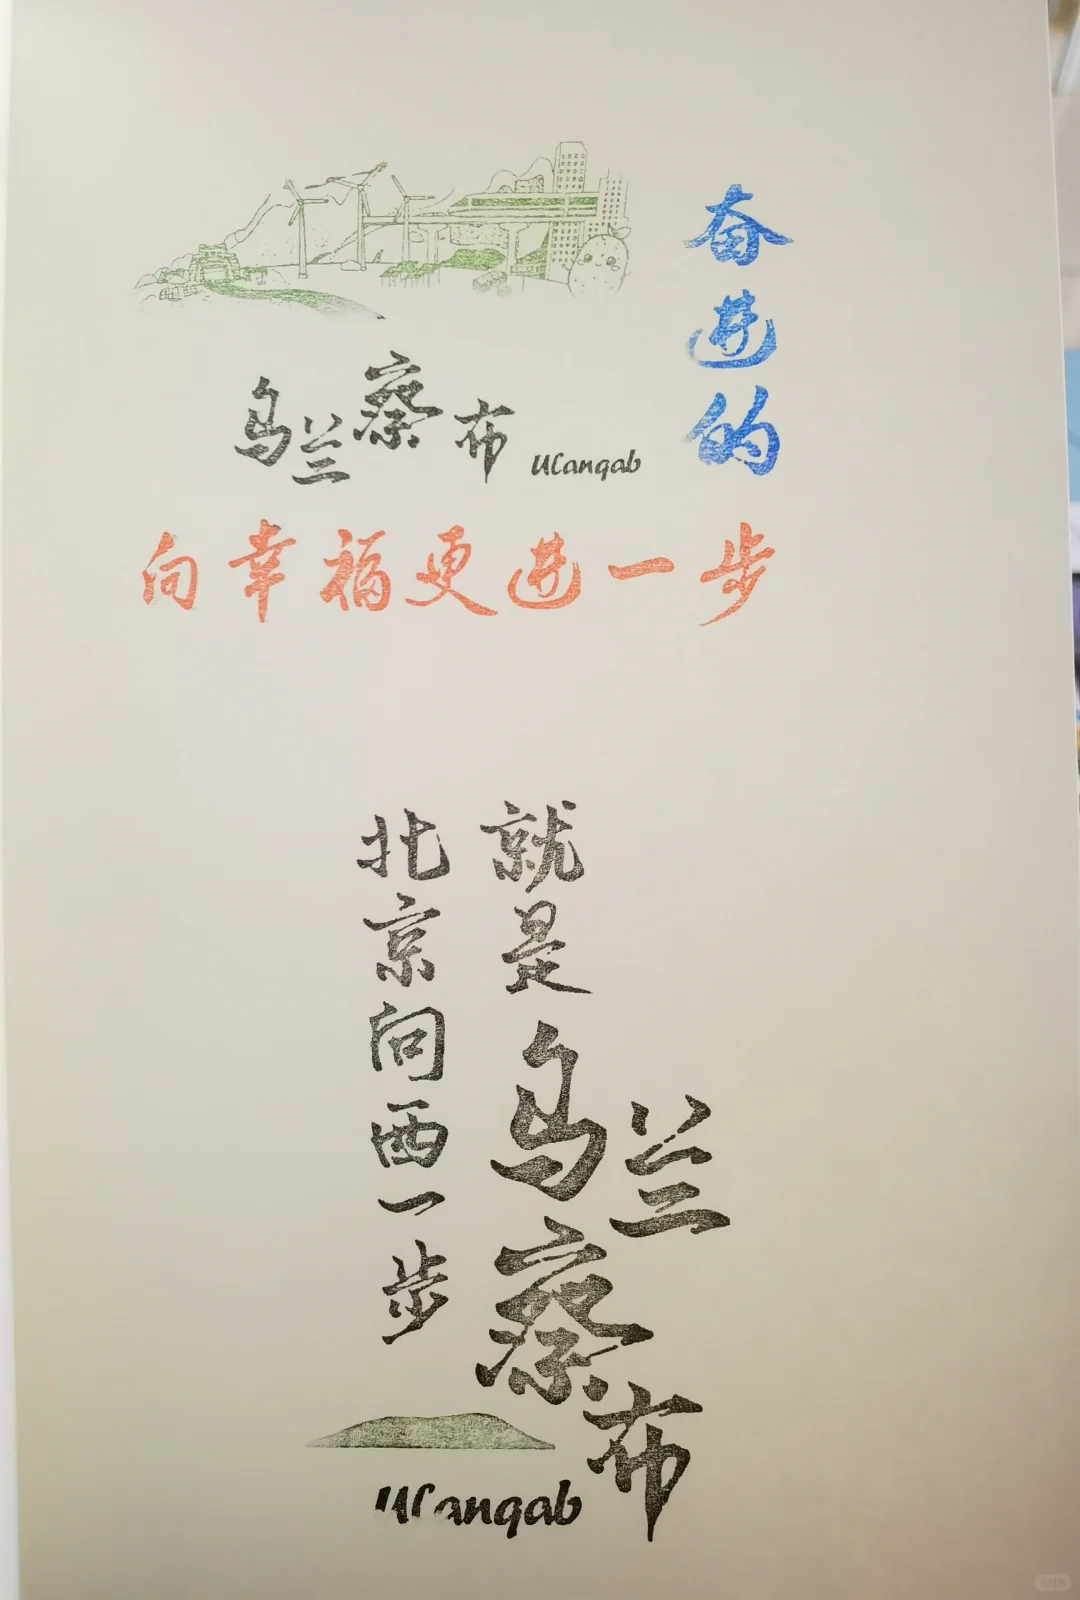 奋进的
乌兰察布 Ulanqab
向幸福更进一步
北京向西一步
就是乌兰察布
Ulanqab